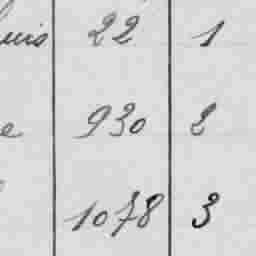 uis 22 1
e 930 2
1078 3